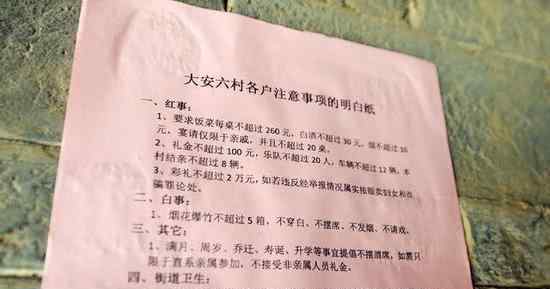 大安六村各户注意事项的明白纸
一、红事：
1、要求饭菜每桌不超过 260 元，白酒不超过 30 元，烟不超过 10
元，宴请仅限于亲戚，并且不超过 20 桌。
2、礼金不超过 100 元，乐队不超过 20 人，车辆不超过 12 辆，本
村结亲不超过 8 辆。
3、彩礼不超过 2 万元，如若违反经举报情况属实按贩卖妇女和诈
骗罪论处。
二、白事：
1、烟花爆竹不超过 5 箱，不穿白、不摆席、不发烟、不请戏。
三、其它：
1、满月、周岁、乔迁、寿诞、升学等事宜提倡不摆酒席，如需只
限于直系亲属参加，不接受非亲属人员礼金。
四、街道卫生：